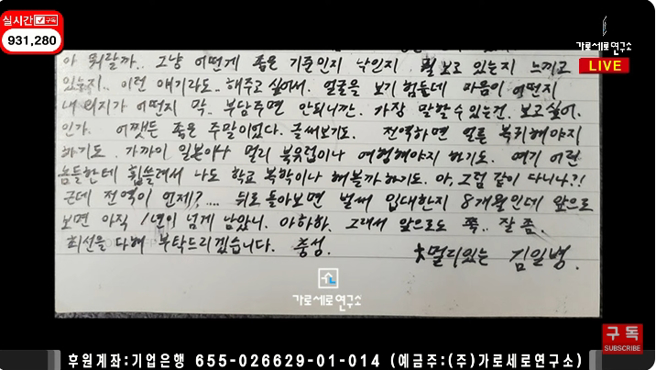 실시간 구독
931,280
가로세로연구소
LIVE
아 뭐랄까.. 그냥 어떤게 좋은 기준인지 낙인지 뭘 보고 있는지 느끼고
있는지.. 이런 얘기라도.. 해주고 싶어서. 얼굴을 보기 힘든데 마음이 어떤지
내 의지가 어떤지 막.. 부담주면 안되니깐. 가장 말할 수 있는건. 보고싶어.
인가. 어쨌든 좋은 주말이었다. 글써보기도. 전역하면 얼른 복귀해야지
하기도. 가까이 일본이나 멀리 북유럽이나 여행해야지 하기도. 여기 어린
놈들한테 휩쓸려서 나도 학교 복학이나 해볼까하기도. 아, 그럼 같이 다니나?!
근데 전역이 언제?.... 뒤로 돌아보면 벌써 입대한지 8개월인데 앞으로
보면 아직 1년이 넘게 남았니. 아하하. 그래서 앞으로도 쭉.. 잘 좀.
최선을 다해 부탁드리겠습니다. 충성.
멀리있는 김일병.
가로세로연구소
구독
SUBSCRIBE
후원계좌:기업은행 655-026629-01-014 (예금주:(주)가로세로연구소)